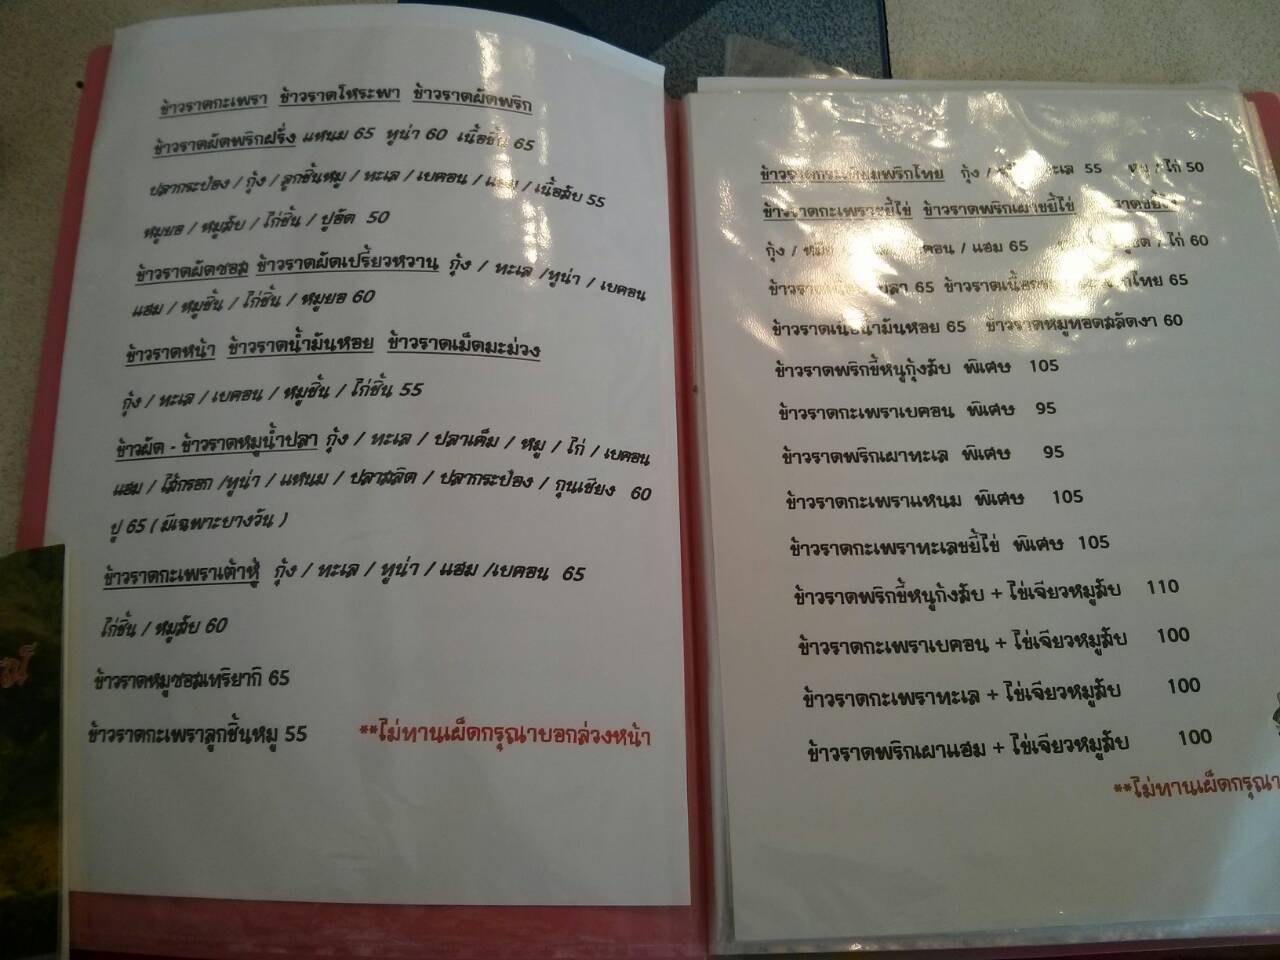 ข้าวราดกะเพรา ข้าวราดโหระพา ข้าวราดผัดพริก
ข้าวราดผัดพริกฝรั่ง แหนม 65 ทูน่า 60 เนื้อชิ้น 65
ปลากระป๋อง / กุ้ง / ลูกชิ้นหมู / ทะเล / เบคอน / แฮม / เนื้อสับ 55
หมูยอ / หมูสับ / ไก่ชิ้น / ปูอัด 50
ข้าวราดผัดซอส ข้าวราดผัดเปรี้ยวหวาน กุ้ง / ทะเล /ทูน่า / เบคอน
แฮม / หมูชิ้น / ไก่ชิ้น / หมูยอ 60
ข้าวราดหน้า ข้าวราดน้ำมันหอย ข้าวราดเม็ดมะม่วง
กุ้ง / ทะเล / เบคอน / หมูชิ้น / ไก่ชิ้น 55
ข้าวผัด - ข้าวราดหมูน้ำปลา กุ้ง / ทะเล / ปลาเค็ม / หมู / ไก่ / เบคอน
แฮม / ไส้กรอก /ทูน่า / แหนม / ปลาสลิด / ปลากระป๋อง / กุนเชียง 60
ปู 65 ( มีเฉพาะบางวัน )
ข้าวราดกะเพราเต้าหู้ กุ้ง / ทะเล / ทูน่า / แฮม /เบคอน 65
ไก่ชิ้น / หมูสับ 60
ข้าวราดหมูซอสเทริยากิ 65
ข้าวราดกะเพราลูกชิ้นหมู 55 **ไม่ทานเผ็ดกรุณาบอกล่วงหน้า
ข้าวราดกระเทียมพริกไทย กุ้ง / ทะเล 55 หมู / ไก่ 50
ข้าวราดกะเพราขยี้ไข่ ข้าวราดพริกเผาขยี้ไข่
กุ้ง / เบคอน / แฮม 65 / ไก่ 60
65 65
ข้าวราดเนื้อน้ำมันหอย 65 ข้าวราดหมูทอดสลัดงา 60
ข้าวราดพริกขี้หนูกุ้งสับ พิเศษ 105
ข้าวราดกะเพราเบคอน พิเศษ 95
ข้าวราดพริกเผาทะเล พิเศษ 95
ข้าวราดกะเพราแหนม พิเศษ 105
ข้าวราดกะเพราทะเลขยี้ไข่ พิเศษ 105
ข้าวราดพริกขี้หนูกุ้งสับ + ไข่เจียวหมูสับ 110
ข้าวราดกะเพราเบคอน + ไข่เจียวหมูสับ 100
ข้าวราดกะเพราทะเล + ไข่เจียวหมูสับ 100
ข้าวราดพริกเผาแฮม + ไข่เจียวหมูสับ 100
**ไม่ทานเผ็ดกรุณา